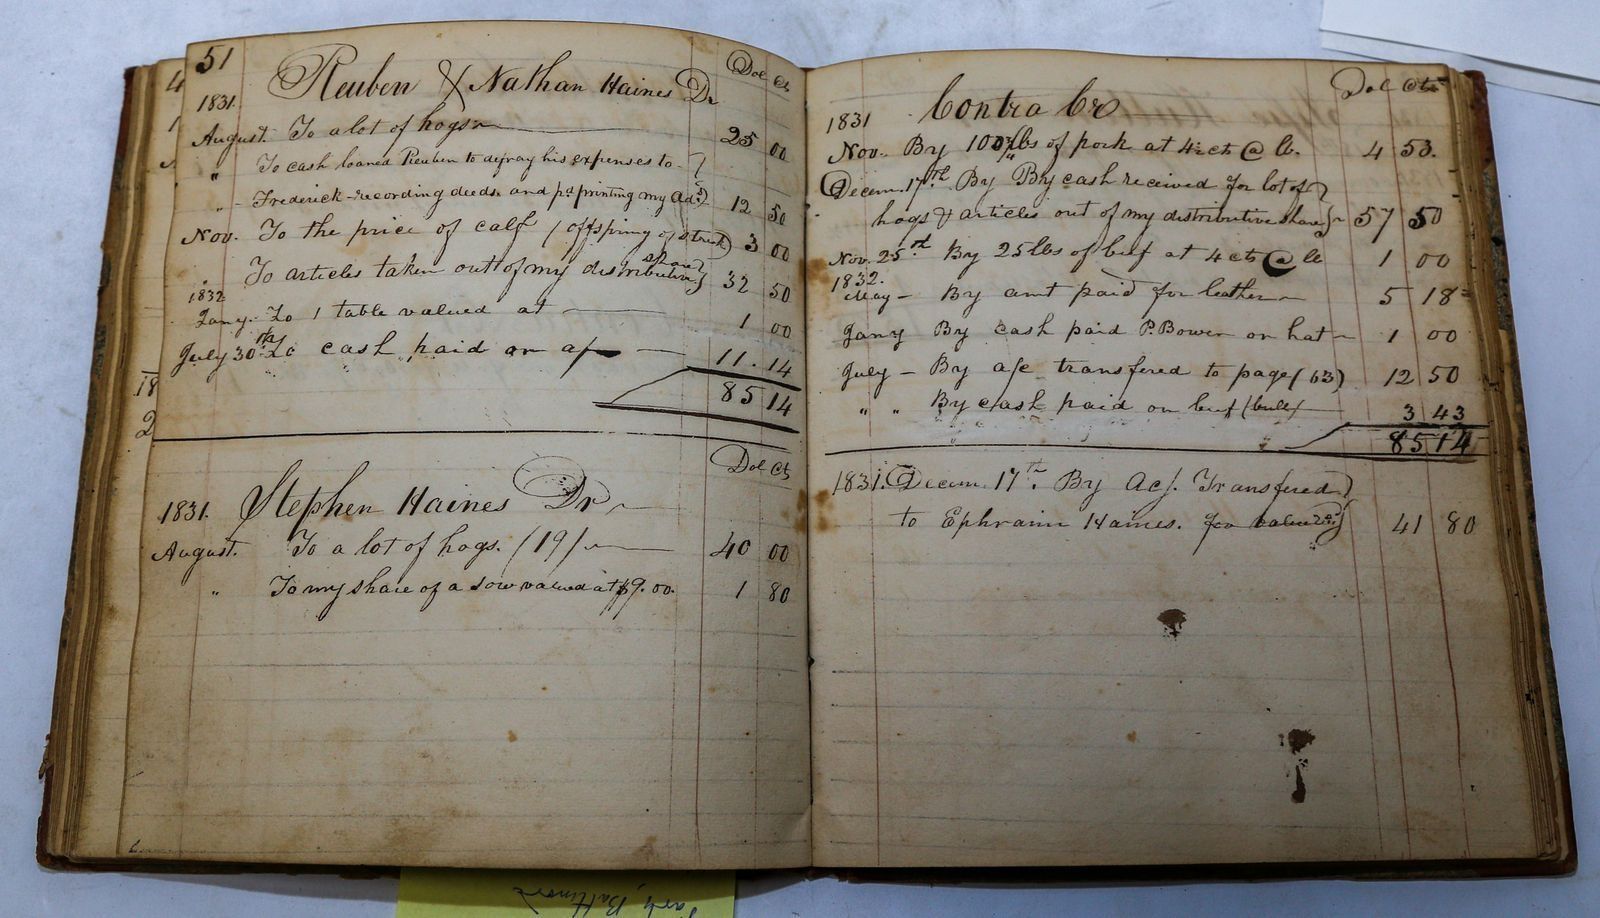 51
Dol Cts
Reuben & Nathan Haines Dr
1831.
August. To a lot of hogs 25 00
" To cash loaned Reuben to defray his expenses to
" - Frederick - recording deeds and pd printing my Ad. 12 50
Nov. To the price of calf (offspring of 3 00
share
" To articles taken out of my distributive 32 50
1832
Jany. To 1 table valued at 1 00
July 30th To cash paid on a/c 11.14
85 14
Dol Cts
1831. Stephen Haines Dr
August. To a lot of hogs. (19) 40 00
" To my share of a sow valued at $9.00. 1 80
4
18
2
Dol Cts
1831 Contra Cr
Nov. By 100 lbs of pork at 4½ cts @ lb. 4 53.
Decem. 17th. By By cash received for lot of
hogs & articles out of my distributive share 57 50
Nov. 25th By 25 lbs of beef at 4 cts @ lb 1 00
1832.
May - By amt paid for leather 5 18
Jany By cash paid P. Bower on hat 1 00
July - By a/c transfered to page (63) 12 50
" " By cash paid on beef (bull) 3 43
85 14
1831. Decem. 17th. By Ac/. Transfered
to Ephraim Haines. for 41 80
Baltimore